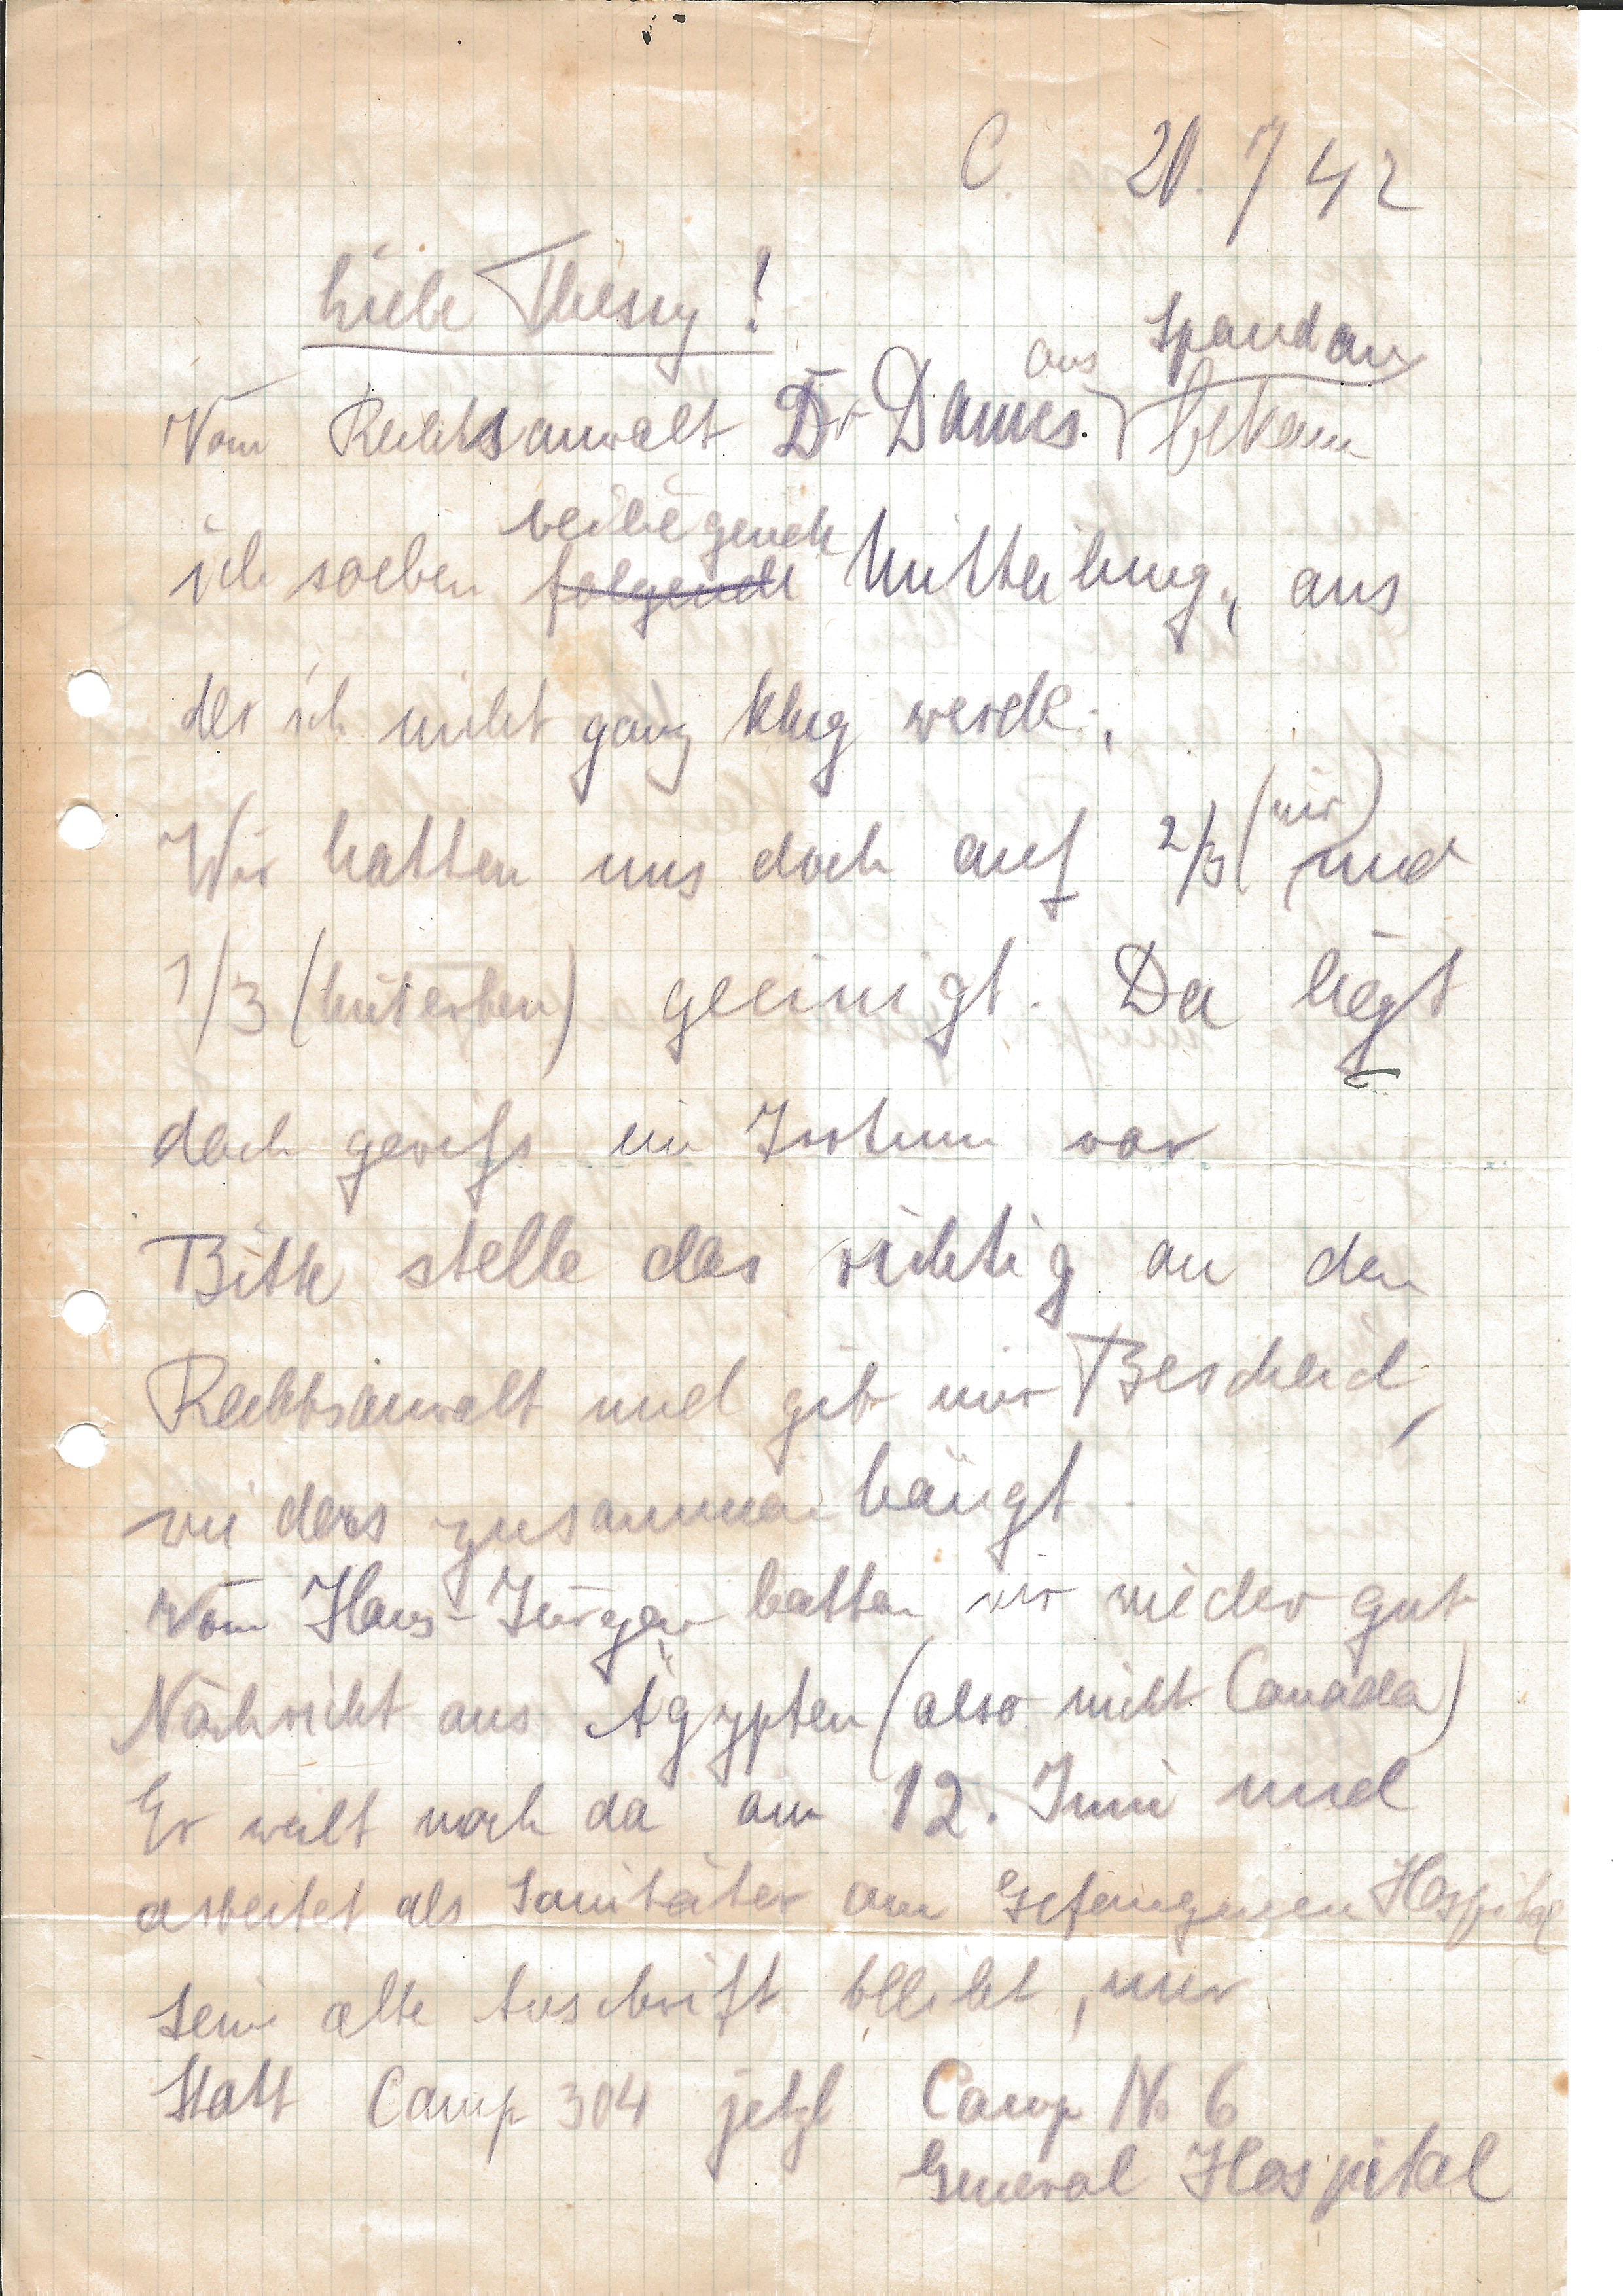 C. 20. 7 42
Liebe Thessy!
aus Spandau
Vom Rechtsanwalt Dr Dames. bekam
beiliegende
ich soeben folgende Mitteilung, aus
der ich nicht ganz klug werde.
(wir)
Wir hatten uns doch auf 2/3 und
1/3 (Miterben) geeinigt. Da liegt
doch gewiß ein Irrtum vor
Bitte stelle das richtig an den
Rechtsanwalt und gib mir Bescheid,
wie das zusammenhängt
Vom Hans-Jürgen hatten wir wieder gute
Nachricht aus Ägypten (also nicht Canada)
Er weilt noch da am 12. Juni und
arbeitet als Sanitäter am Gefangenen Hospital
Seine alte Anschrift bleibt, nur
Statt Camp 304 jetzt Camp No 6
General Hospital